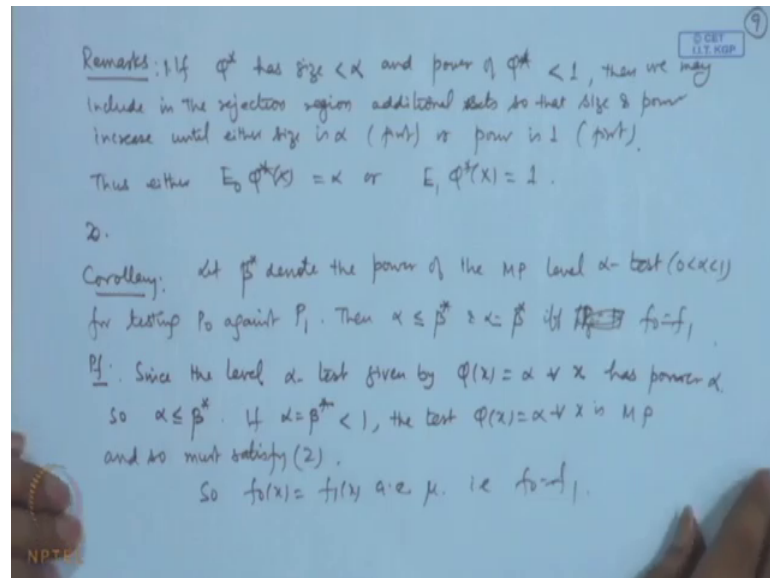 9
© CET
I.I.T. KGP
Remarks: 1. If φ* has size < α and power of φ* < 1, then we may
include in the rejection region additional sets so that size & power
increase until either size is α (first) or power is 1 (first).
Thus either E₀ φ*(X) = α or E₁ φ*(X) = 1.
2.
Corollary: Let β* denote the power of the MP level α- test (0<α<1)
for testing P₀ against P₁. Then α ≤ β* & α = β* iff f₀=f₁.
Pf. Since the level α- test given by φ(x) = α ∀ x has power α.
So α ≤ β*. If α = β* < 1, the test φ(x) = α ∀ x is MP
and so must satisfy (2).
So f₀(x) = f₁(x) a.e. μ. ie f₀=f₁.
NPTEL